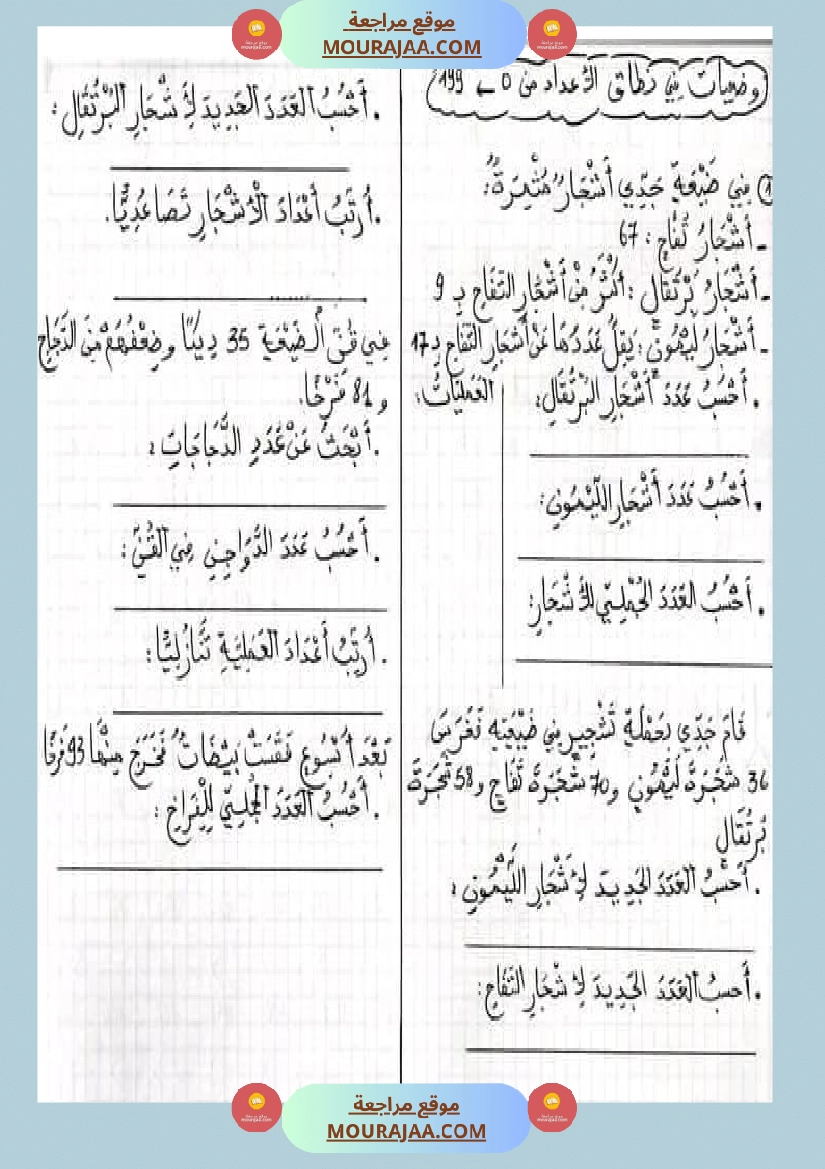 موقع مراجعة
MOURAJAA.COM
وضعيات في نطاق الأعداد من 0 ← 199
① فِي ضَيْعَةِ جَدِّي أَشْجَارٌ مُثْمِرَةٌ:
- أَشْجَارُ تُفَّاحٍ : 67
- أَشْجَارُ بُرْتُقَالٍ : أَكْثَرُ مِنْ أَشْجَارِ التُّفَّاحِ بِـ 9
- أَشْجَارُ لَيْمُونٍ : يَقِلُّ عَدَدُهَا عَنْ أَشْجَارِ التُّفَّاحِ بِـ 17
. أَحْسُبُ عَدَدَ أَشْجَارِ البُرْتُقَالِ: العَمَلِيَّاتُ:
. أَحْسُبُ عَدَدَ أَشْجَارِ اللَّيْمُونِ:
. أَحْسُبُ العَدَدَ الجُمْلِيَّ لِلْأَشْجَارِ:
قَامَ جَدِّي بِحَمْلَةِ تَشْجِيرٍ فِي ضَيْعَتِهِ فَغَرَسَ
36 شَجَرَةَ لَيْمُونٍ و 70 شَجَرَةَ تُفَّاحٍ و 58 شَجَرَةَ
بُرْتُقَالٍ
. أَحْسُبُ العَدَدَ الجَدِيدَ لِأَشْجَارِ اللَّيْمُونِ :
. أَحْسُبُ العَدَدَ الجَدِيدَ لِأَشْجَارِ التُّفَّاحِ:
. أَحْسُبُ العَدَدَ الجَدِيدَ لِأَشْجَارِ البُرْتُقَالِ :
. أُرَتِّبُ أَعْدَادَ الْأَشْجَارِ تَصَاعُدِيًّا.
فِي قُنِّ الضَّيْعَةِ 35 دِيكًا وضِعْفُهُمْ مِنَ الدَّجَاجِ
و 81 فَرْخًا.
. أَبْحَثُ عَنْ عَدَدِ الدَّجَاجَاتِ :
. أَحْسُبُ عَدَدَ الدَّوَاجِنِ فِي القُنِّ :
. أُرَتِّبُ أَعْدَادَ العَمَلِيَّةِ تَنَازُلِيًّا :
بَعْدَ أُسْبُوعٍ فَقَسَتْ بَيْضَاتٌ فَخَرَجَ مِنْهَا 93 فَرْخًا
. أَحْسُبُ العَدَدَ الجُمْلِيَّ لِلْفِرَاخِ :
موقع مراجعة
MOURAJAA.COM